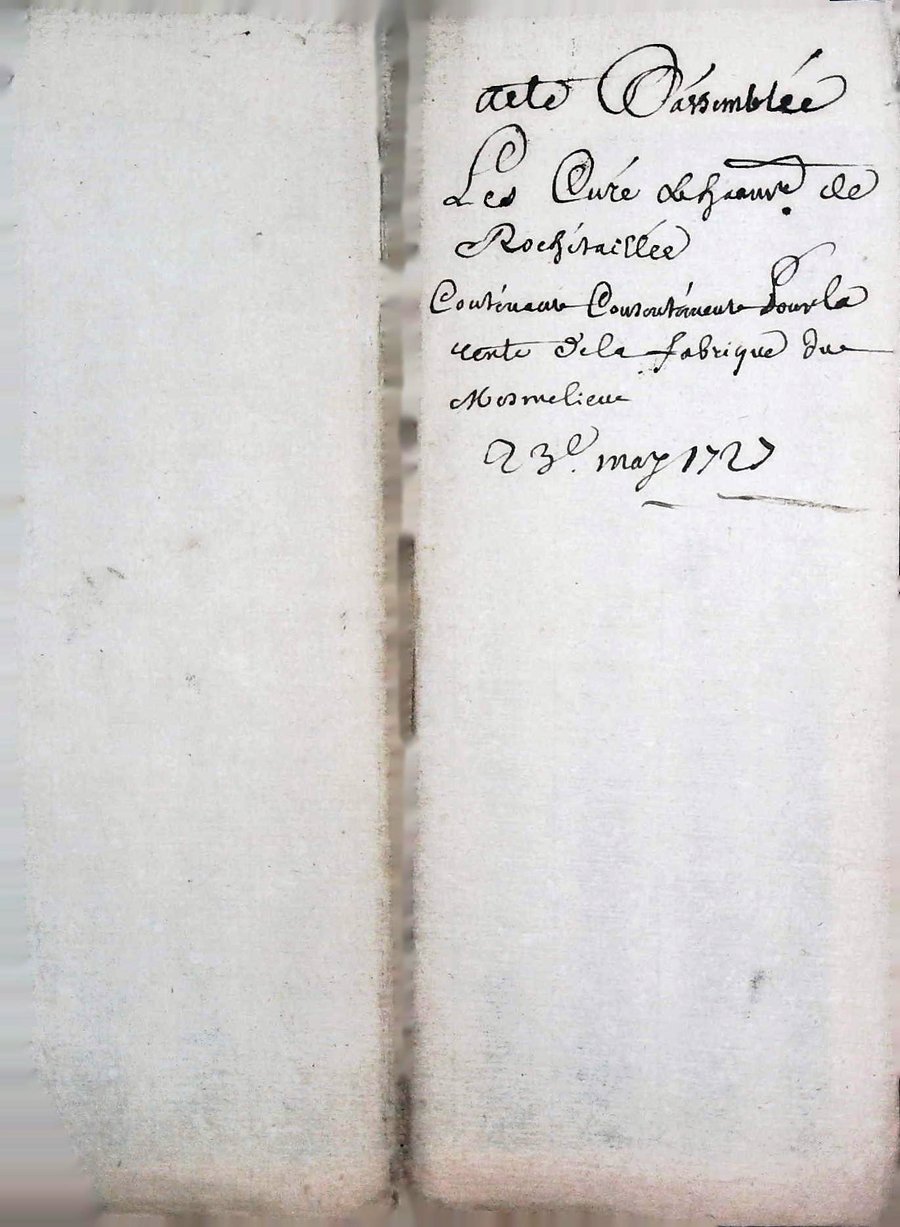 acte D'assemblée
Les Curé & habitans de
Rochetaillée
Contenant Consentement pour la
vente de la fabrique du
Mesmelieu
23e. may 1727